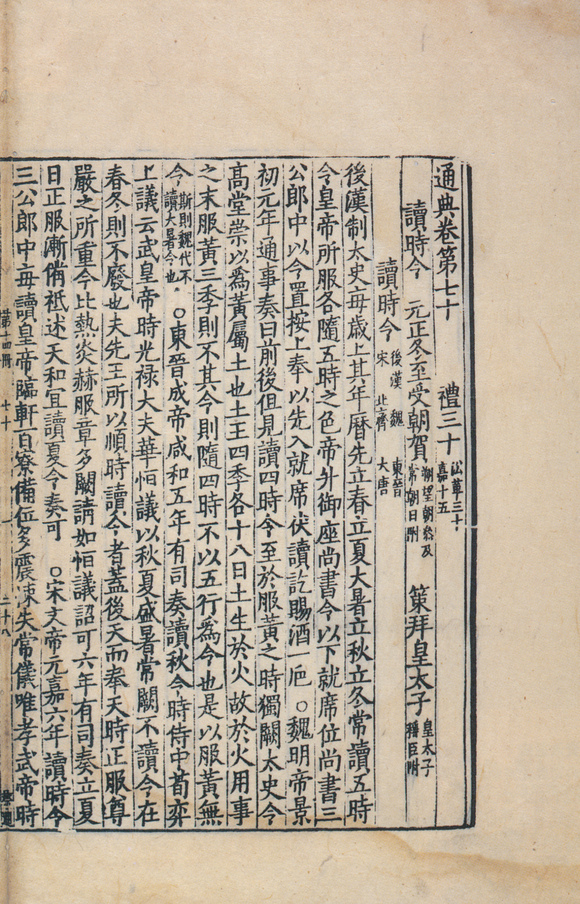 通典卷第七十 禮三十 㳂革三十 嘉十五
讀時令 元正冬至受朝賀 朔望朝參及常朝日附 策拜皇太子 皇太子稱臣附
讀時令 後漢 魏 東晉 宋 北齊 大唐
後漢制太史每歲上其年曆先立春立夏大暑立秋立冬常讀五時
令皇帝所服各隨五時之色帝升御座尚書令以下就席位尚書三
公郎中以令置按上奉以先入就席伏讀訖賜酒一巵 〇魏明帝景
初元年通事奏曰前後但見讀四時令至於服黃之時獨闕太史令
高堂崇以為黃屬土也土王四季各十八日土生於火故於火用事
之末服黃三季則不其令則隨四時不以五行為令也是以服黃無
令 斯則魏代不讀大暑令也 〇東晉成帝咸和五年有司奏讀秋令時侍中荀弈
上議云武皇帝時光禄大夫華恒議以秋夏盛暑常闕不讀令在
春冬則不廢也夫先王所以順時讀令者蓋後天而奉天時正服尊
嚴之所重今比熱炎赫服章多闕請如恒議詔可六年有司奏立夏
日正服漸備祗述天和宜讀夏令奏可 〇宋文帝元嘉六年讀時令
三公郎中每讀皇帝臨軒百寮備位多震悚失常儀唯孝武帝時
第十四冊 七十 一 二十八